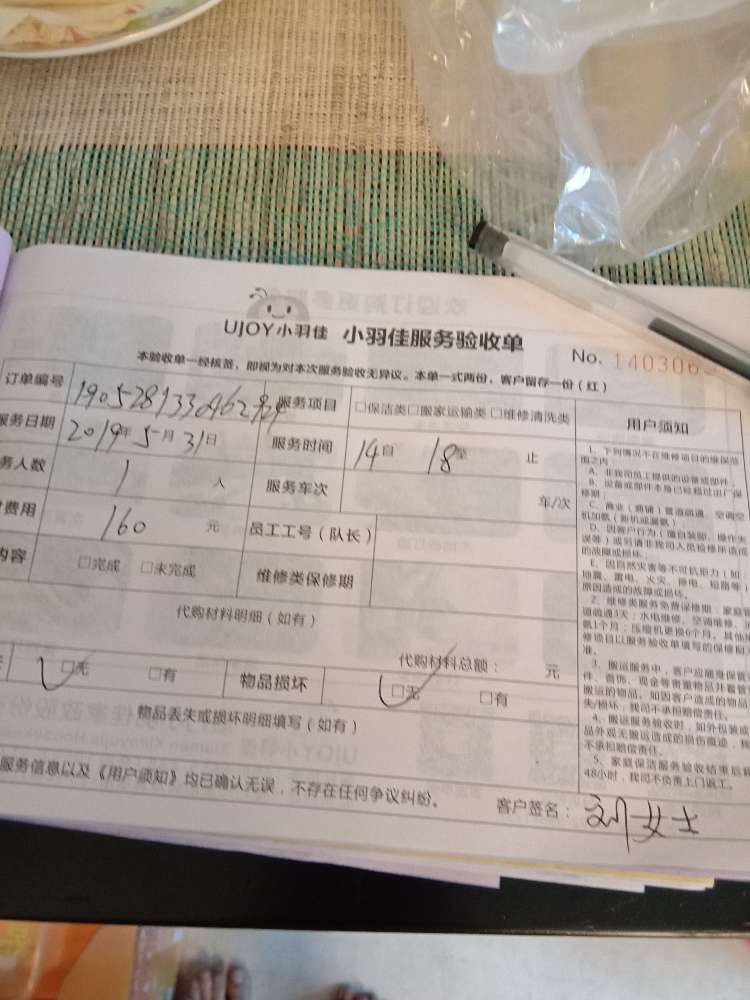 UJOY小羽佳 小羽佳服务验收单 No. 140306
本验收单一经核签，即视为对本次服务验收无异议。本单一式两份，客户留存一份（红）
订单编号 服务项目 □保洁类□搬家运输类□维修清洗类 用户须知
服务日期 2019年5月31日 服务时间 14自 18至 止
务人数 1 人 服务车次 车/次
费用 160 元 员工工号（队长）
内容 □完成 □未完成 维修类保修期
代购材料明细（如有）
代购材料总额： 元
□无 □有 物品损坏 □无 □有
物品丢失或损坏明细填写（如有）
服务信息以及《用户须知》均已确认无误，不存在任何争议纠纷。
客户签名：刘女士
1、下列情况不在维修项目的维保范
围之内
A、非我司员工提供的设备或部件；
B、设备或部件本身已经超过出厂保
修期；
C、商业（商铺）管道疏通、空调空
机加氨（新机或漏氨）；
D、因客户行为（擅自装卸、操作失
误等）或另请非我司人员检修所造成
的故障或损坏
E、因自然灾害等不可抗拒力（如：
地震、雷电、火灾、停电、短路等）
原因造成的故障或损坏。
2、维修类服务免费保修期：家庭管
道疏通3天；水电维修、空调维修、
氨1个月；压缩机更换6个月。其他
修项目以服务验收单填写的保修期为
准。
3、搬运服务中，客户应随身保管
件、首饰、现金等贵重物品并看管
搬运的物品，如因客户造成的物品
失/损坏，我司不承担赔偿责任。
4、搬运服务验收时，如外包装或
品外观无搬运造成的损伤痕迹，我
不承担赔偿责任。
5、家庭保洁服务验收结束后超
48小时，我司不负责上门返工。